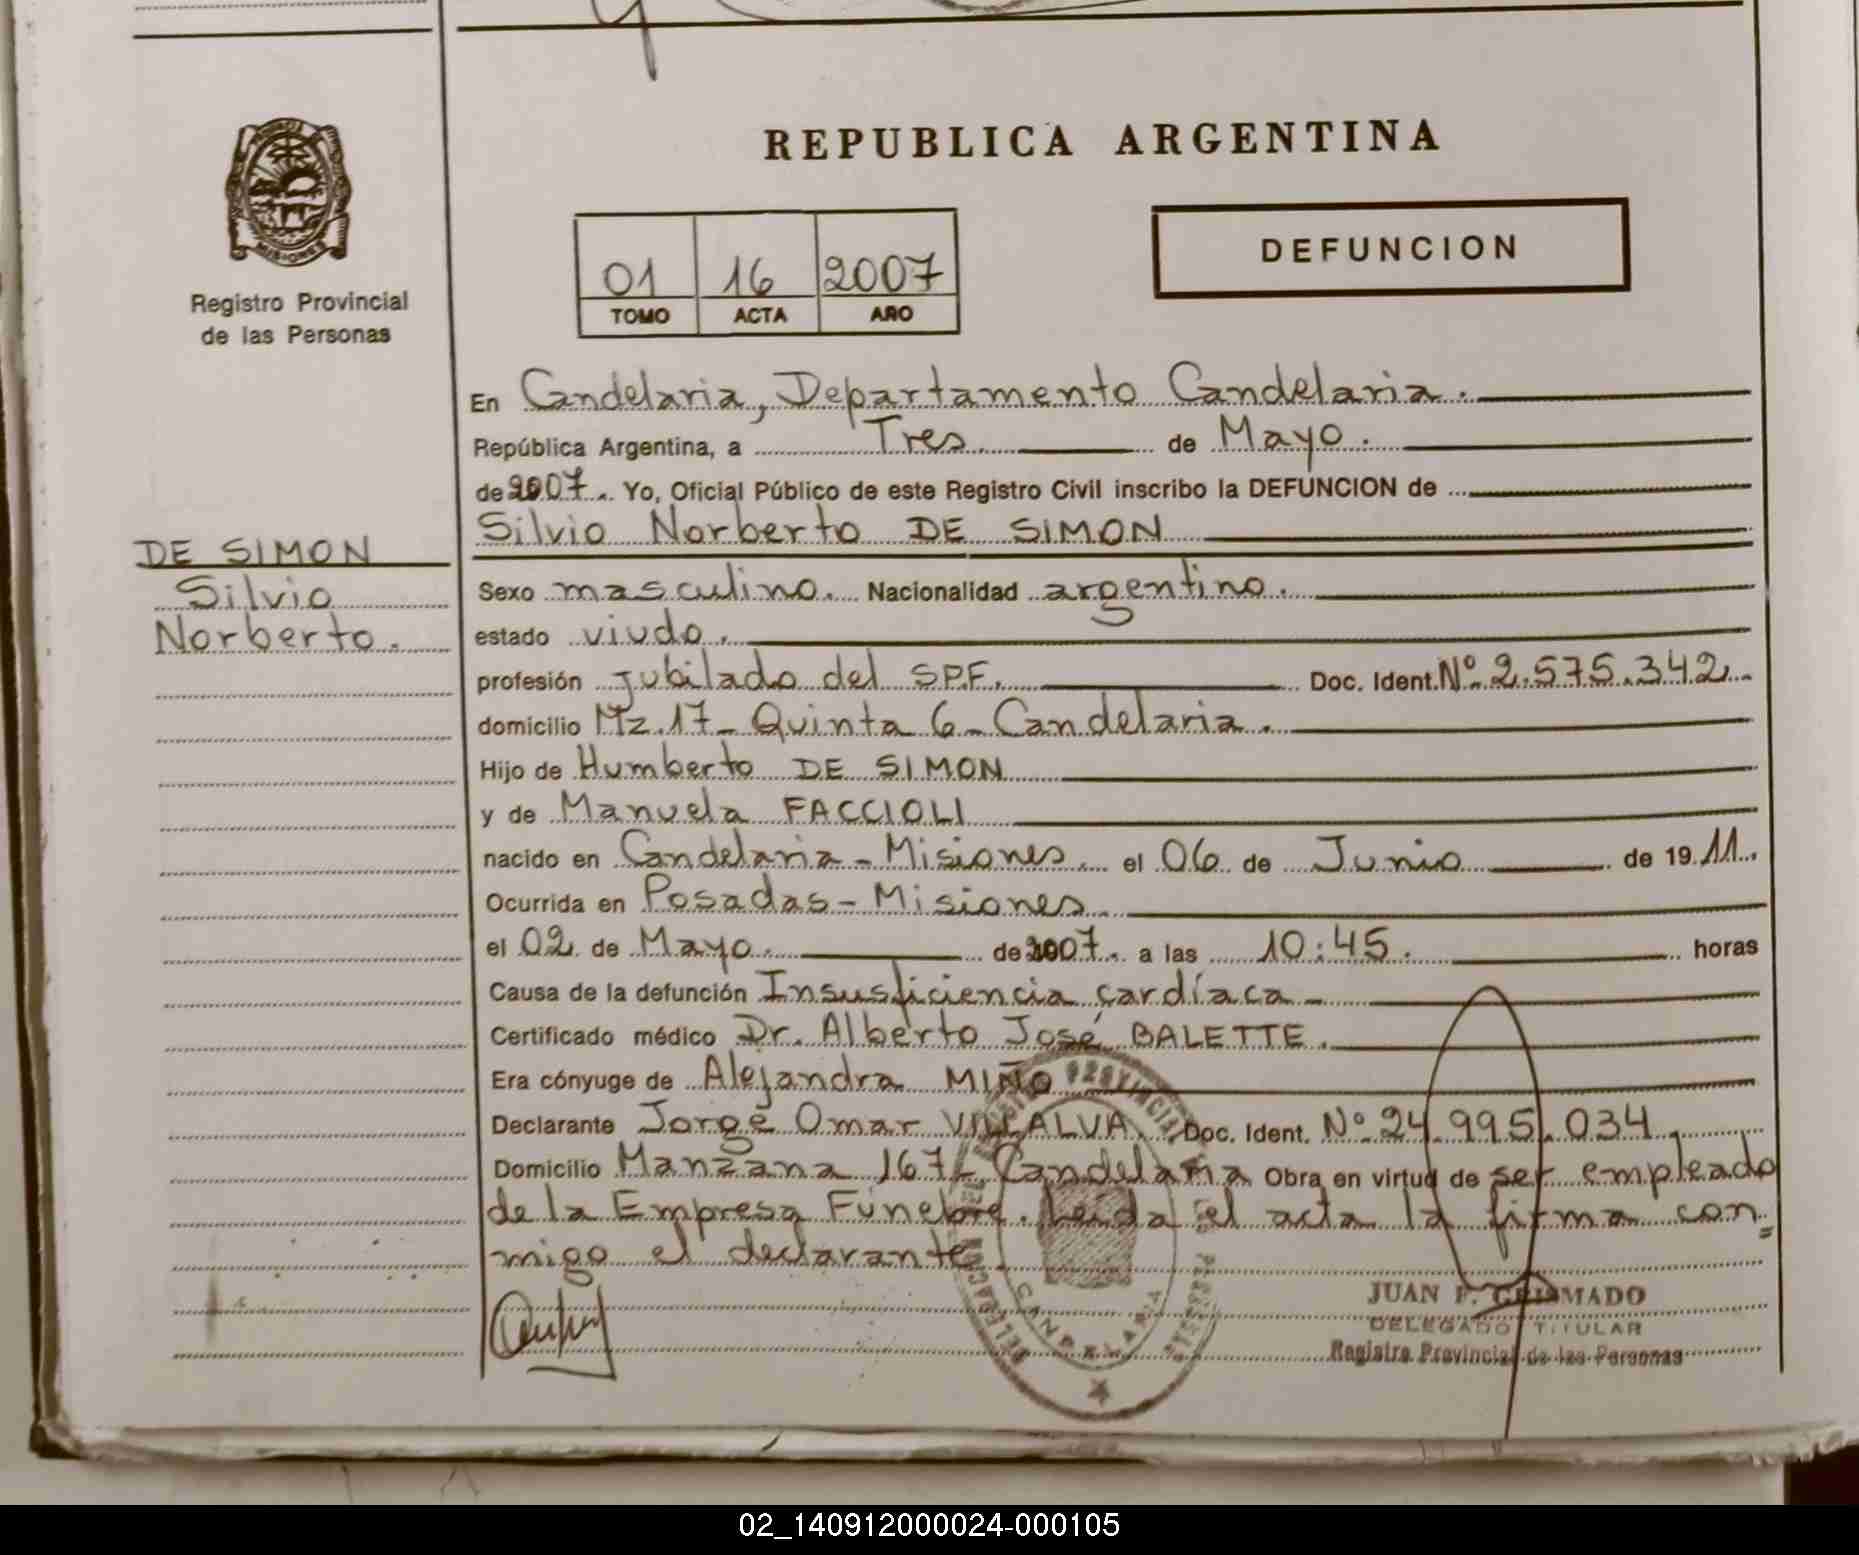 REPUBLICA ARGENTINA
MISIONES
Registro Provincial
de las Personas
01 16 2007
TOMO ACTA AÑO
DEFUNCION
En Candelaria, Departamento Candelaria.
República Argentina, a Tres de Mayo.
de 2007. Yo, Oficial Público de este Registro Civil inscribo la DEFUNCION de
Silvio Norberto DE SIMON
DE SIMON
Silvio
Norberto.
Sexo masculino. Nacionalidad argentino.
estado viudo.
profesión jubilado del S.P.F. Doc. Ident. Nº 2.575.342
domicilio Mz. 17 - Quinta 6 - Candelaria.
Hijo de Humberto DE SIMON
y de Manuela FACCIOLI
nacido en Candelaria - Misiones. el 06 de Junio de 19 11.
Ocurrida en Posadas - Misiones.
el 02 de Mayo. de 2007. a las 10:45. horas
Causa de la defunción Insuficiencia cardíaca -
Certificado médico Dr. Alberto José BALETTE.
Era cónyuge de Alejandra MIÑO
Declarante Jorge Omar VILLALVA. Doc. Ident. Nº 24.995.034
Domicilio Manzana 167 - Candelaria Obra en virtud de ser empleado
de la Empresa Fúnebre. Leída el acta la firma con=
migo el declarante.
CANDELARIA
JUAN F. GRISMADO
DELEGADO TITULAR
Registro Provincial de las Personas
02_140912000024-000105